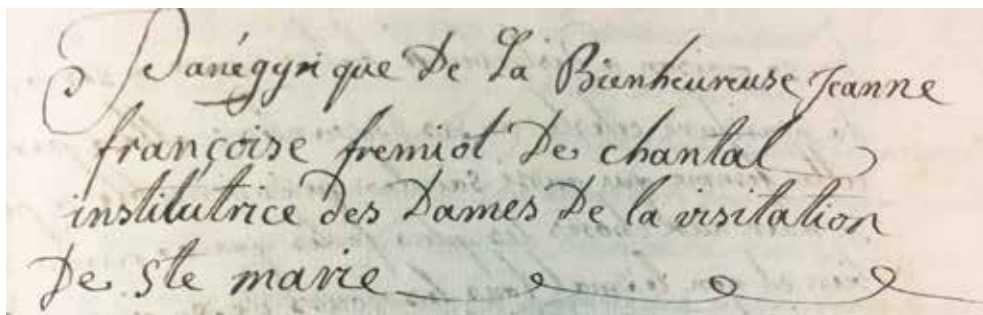 Panégyrique De La Bienheureuse Jeanne
françoise fremiot De chantal
institutrice des Dames De la visitation
De Ste marie